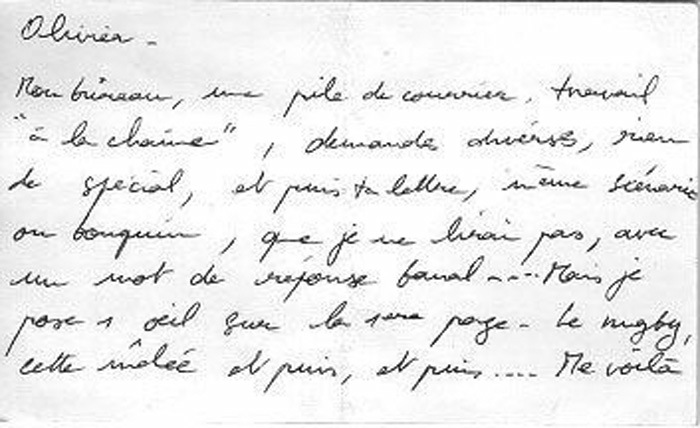 Olivier -
Mon bureau, une pile de courrier, travail
"à la chaîne", demandes diverses, rien
de spécial, et puis ta lettre, même scénario
ou bouquin, que je ne lirai pas, avec
un mot de réponse banal.... Mais je
pose 1 oeil sur la 1ere page - Le rugby,
cette mêlée et puis, et puis.... Me voilà